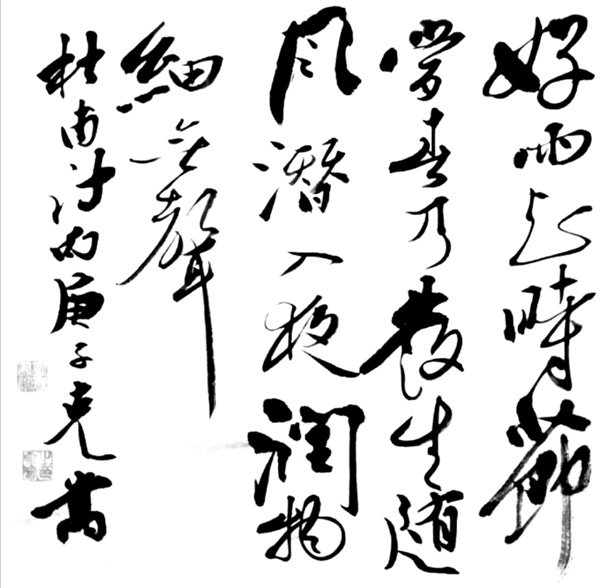 好雨知時節
當春乃發生隨
风潛入夜潤物
細無聲
杜甫诗句庚子克